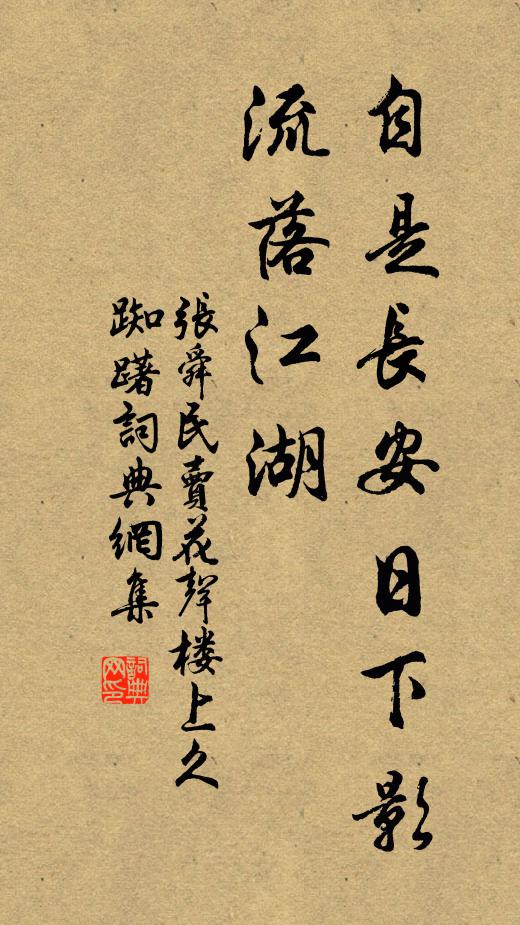 自是長安日下影
流落江湖
張舜民賣花聲楼上久
踟躇詞典網集
詞典網印